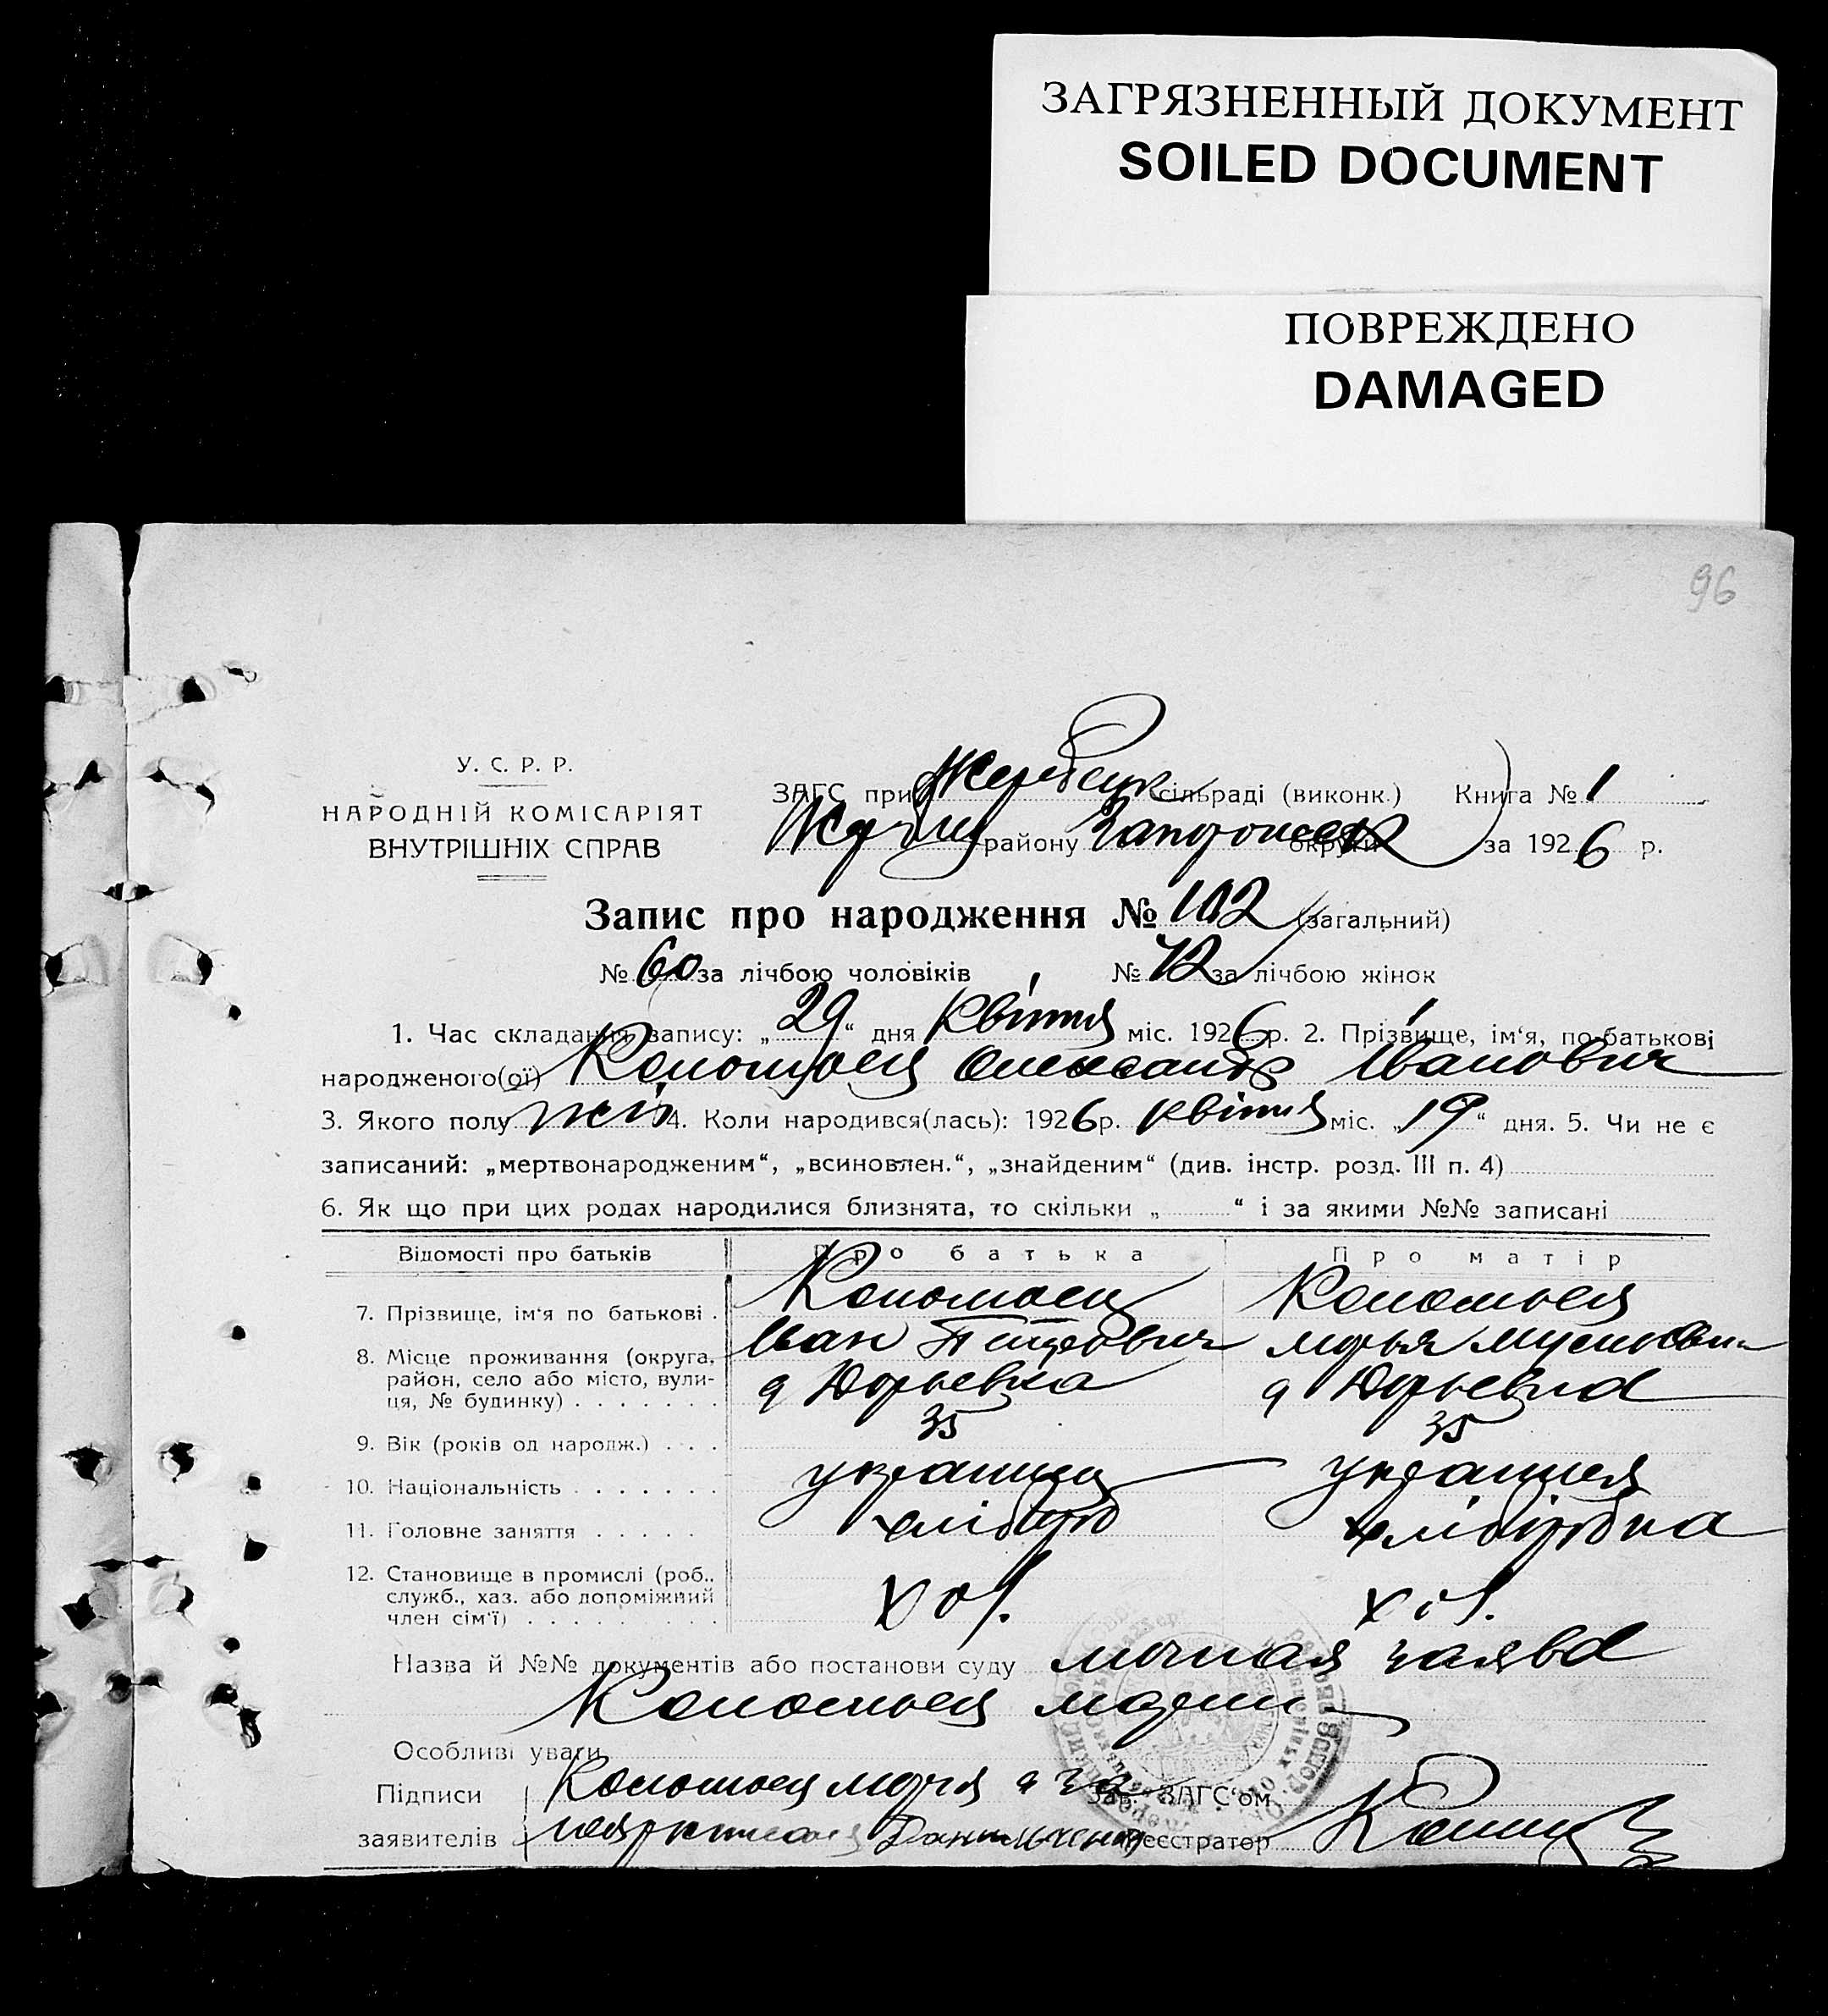 ЗАГРЯЗНЕННЫЙ ДОКУМЕНТ
SOILED DOCUMENT
ПОВРЕЖДЕНО
DAMAGED
96
У. С. Р. Р.
НАРОДНІЙ КОМІСАРІЯТ
ВНУТРІШНІХ СПРАВ
ЗАГС при Жеребецк сільраді (виконк.) Книга № 1
району Запорожск округи за 1926 р.
Запис про народження № 102 (загальний)
№ 60 за лічбою чоловіків № 42 за лічбою жінок
1. Час складання запису: „29“ дня Квітня міс. 1926 р. 2. Прізвище, ім‘я, по-батькові
народженого(ої) Коломоец Олександр Іванович
3. Якого полу 4. Коли народився(лась): 1926 р. квітня міс. „19“ дня. 5. Чи не є
записаний: „мертвонародженим“, „всиновлен.“, „знайденим“ (див. інстр. розд. III п. 4)
6. Як що при цих родах народилися близнята, то скільки „ “ і за якими №№ записані
Відомості про батьків Про батька Про матір
7. Прізвище, ім‘я по батькові . Коломоец Коломоец
Іван Петрович Марья
8. Місце проживання (округа, район, село або місто, вулиця, № будинку) . . . . . . . Юрьевка Юрьевка
9. Вік (років од народж.) . . . 35 35
10. Національність . . . . . . . украинец
11. Головне заняття . . . . . хлібороб хліборобка
12. Становище в промислі (роб., служб., хаз. або допоміжний член сім‘ї) . . . . . . . . .
Назва й №№ документів або постанови суду личная заява
Коломоец Марии
Особливі уваги
Підписи Коломоец Марія а за Зав. ЗАГС‘ом
заявителів Данильченко Реєстратор